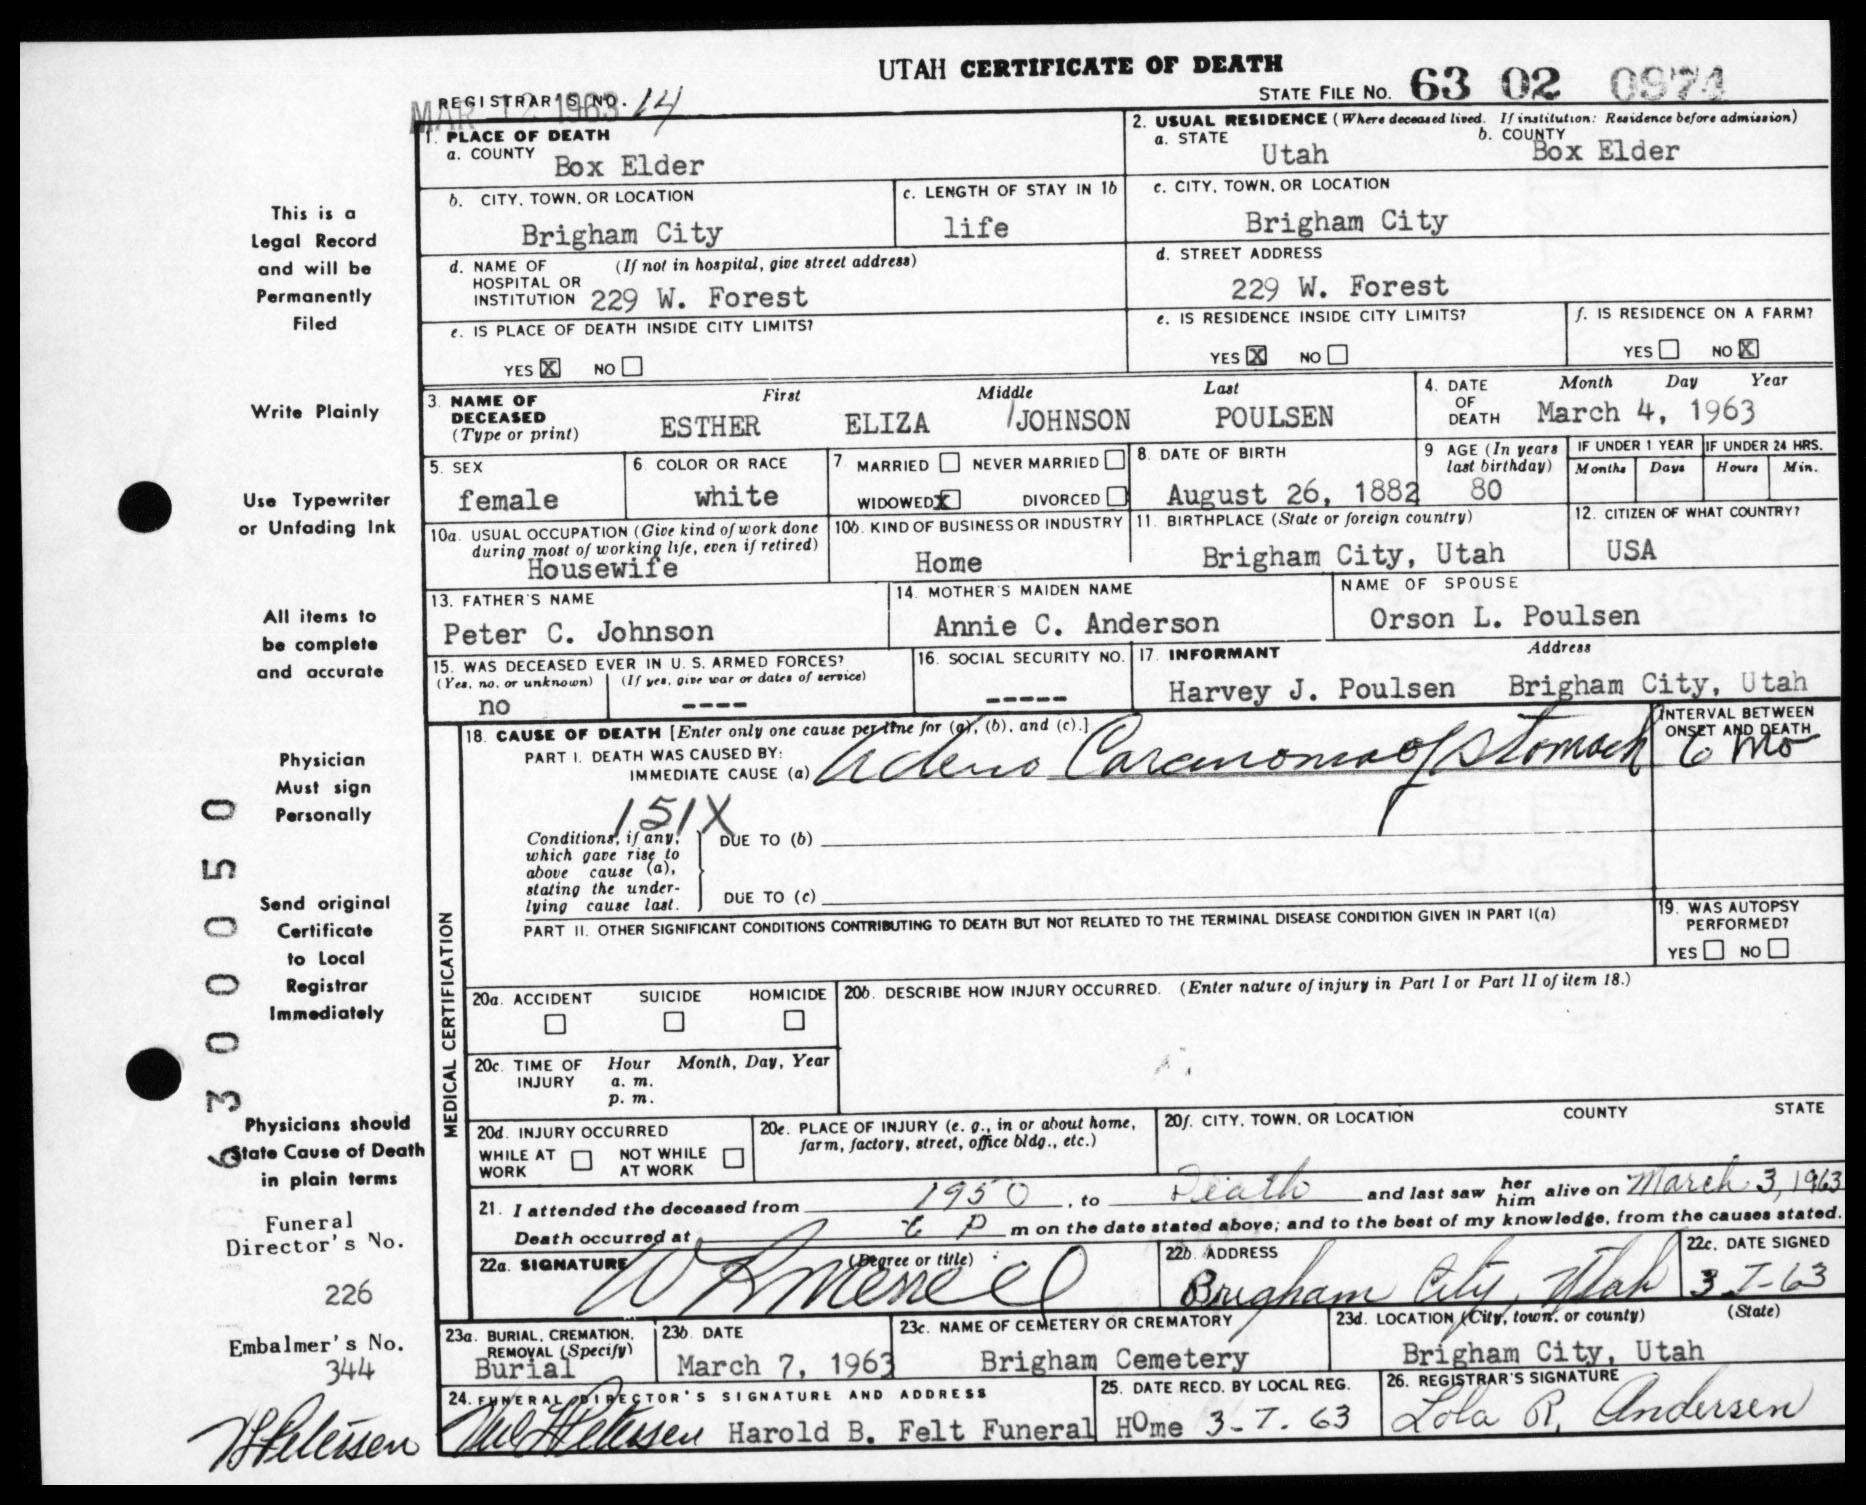 UTAH CERTIFICATE OF DEATH
STATE FILE NO. 63 02 0974
REGISTRAR'S NO. 14
MAR 12 1963
1. PLACE OF DEATH
a. COUNTY
Box Elder
2. USUAL RESIDENCE (Where deceased lived. If institution: Residence before admission)
a. STATE b. COUNTY
Utah Box Elder
b. CITY, TOWN, OR LOCATION
Brigham City
c. LENGTH OF STAY IN 1b
life
c. CITY, TOWN, OR LOCATION
Brigham City
d. NAME OF (If not in hospital, give street address)
HOSPITAL OR
INSTITUTION 229 W. Forest
d. STREET ADDRESS
229 W. Forest
e. IS PLACE OF DEATH INSIDE CITY LIMITS?
YES X NO
e. IS RESIDENCE INSIDE CITY LIMITS?
YES X NO
f. IS RESIDENCE ON A FARM?
YES NO X
3. NAME OF First Middle Last
DECEASED
(Type or print) ESTHER ELIZA /JOHNSON POULSEN
4. DATE Month Day Year
OF
DEATH March 4, 1963
5. SEX
female
6. COLOR OR RACE
white
7. MARRIED NEVER MARRIED
WIDOWED X DIVORCED
8. DATE OF BIRTH
August 26, 1882
9 AGE (In years
last birthday)
80
IF UNDER 1 YEAR IF UNDER 24 HRS.
Months Days Hours Min.
10a. USUAL OCCUPATION (Give kind of work done
during most of working life, even if retired)
Housewife
10b. KIND OF BUSINESS OR INDUSTRY
Home
11. BIRTHPLACE (State or foreign country)
Brigham City, Utah
12. CITIZEN OF WHAT COUNTRY?
USA
13. FATHER'S NAME
Peter C. Johnson
14. MOTHER'S MAIDEN NAME
Annie C. Anderson
NAME OF SPOUSE
Orson L. Poulsen
15. WAS DECEASED EVER IN U. S. ARMED FORCES?
(Yes, no, or unknown) (If yes, give war or dates of service)
no ----
16. SOCIAL SECURITY NO.
-----
17. INFORMANT Address
Harvey J. Poulsen Brigham City, Utah
MEDICAL CERTIFICATION
18. CAUSE OF DEATH [Enter only one cause per line for (a), (b), and (c).]
PART I. DEATH WAS CAUSED BY:
IMMEDIATE CAUSE (a) Adeno Carcinoma of Stomach
INTERVAL BETWEEN
ONSET AND DEATH
6 Mo
151X
Conditions, if any,
which gave rise to
above cause (a),
stating the under-
lying cause last.
DUE TO (b)
DUE TO (c)
PART II. OTHER SIGNIFICANT CONDITIONS CONTRIBUTING TO DEATH BUT NOT RELATED TO THE TERMINAL DISEASE CONDITION GIVEN IN PART I(a)
19. WAS AUTOPSY
PERFORMED?
YES NO
20a. ACCIDENT SUICIDE HOMICIDE
20b. DESCRIBE HOW INJURY OCCURRED. (Enter nature of injury in Part I or Part II of item 18.)
20c. TIME OF Hour Month, Day, Year
INJURY a. m.
p. m.
20d. INJURY OCCURRED
WHILE AT NOT WHILE
WORK AT WORK
20e. PLACE OF INJURY (e. g., in or about home,
farm, factory, street, office bldg., etc.)
20f. CITY, TOWN, OR LOCATION COUNTY STATE
21. I attended the deceased from 1950, to Death and last saw her him alive on March 3, 1963
Death occurred at 6 P m on the date stated above; and to the best of my knowledge, from the causes stated.
22a. SIGNATURE (Degree or title)
W R Merrell
22b. ADDRESS
Brigham City, Utah
22c. DATE SIGNED
3-7-63
23a. BURIAL, CREMATION,
REMOVAL (Specify)
Burial
23b. DATE
March 7, 1963
23c. NAME OF CEMETERY OR CREMATORY
Brigham Cemetery
23d. LOCATION (City, town, or county) (State)
Brigham City, Utah
24. FUNERAL DIRECTOR'S SIGNATURE AND ADDRESS
Harold B. Felt Funeral Home
25. DATE RECD. BY LOCAL REG.
3-7-63
26. REGISTRAR'S SIGNATURE
Lola R. Andersen
This is a
Legal Record
and will be
Permanently
Filed
Write Plainly
Use Typewriter
or Unfading Ink
All items to
be complete
and accurate
Physician
Must sign
Personally
Send original
Certificate
to Local
Registrar
Immediately
Physicians should
State Cause of Death
in plain terms
Funeral
Director's No.
226
Embalmer's No.
344
6300050